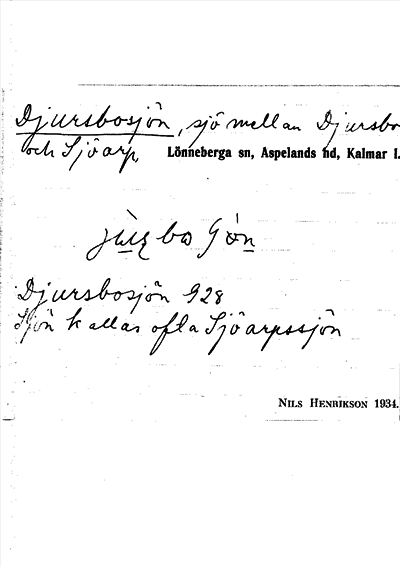 Djursbosjön, sjö mellan Djursbo
och Sjöarp, Lönneberga sn, Aspelands hd, Kalmar l.
Djursbosjön 928
Sjön kallas ofta Sjöarpssjön
NILS HENRIKSON 1934.